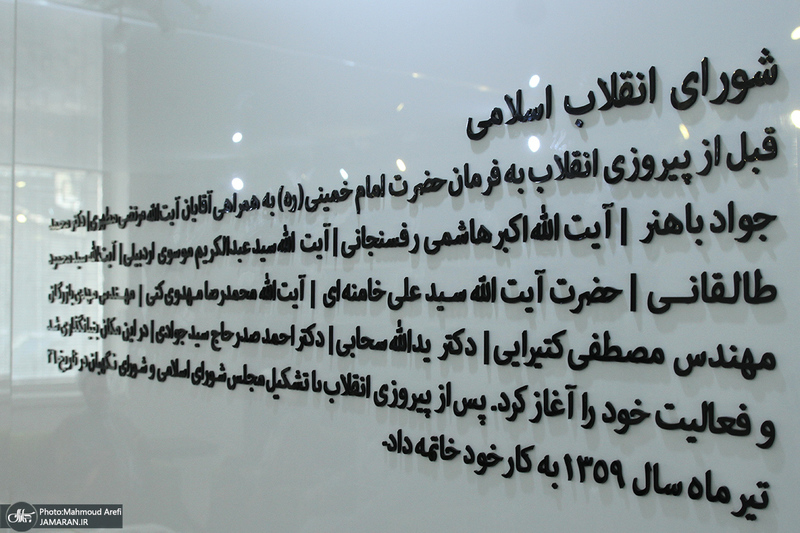 شورای انقلاب اسلامی
قبل از پیروزی انقلاب به فرمان حضرت امام خمینی(ره) به همراهی آقایان آیت‌الله مرتضی مطهری | دکتر محمد
جواد باهنر | آیت الله اکبر هاشمی رفسنجانی | آیت الله سید عبدالکریم موسوی اردبیلی | آیت‌الله سید محمود
طالقانی | حضرت آیت الله سید علی خامنه ای | آیت‌الله محمدرضا مهدوی کنی | مهندس مهدی بازرگان
مهندس مصطفی کتیرایی | دکتر یدالله سحابی | دکتر احمد صدر حاج سید جوادی | در این مکان بنیانگذاری شد
و فعالیت خود را آغاز کرد. پس از پیروزی انقلاب با تشکیل مجلس شورای اسلامی و شورای نگهبان در تاریخ ۲۶
تیر ماه سال ۱۳۵۹ به کار خود خاتمه داد.
Photo:Mahmoud Arefi
JAMARAN.IR